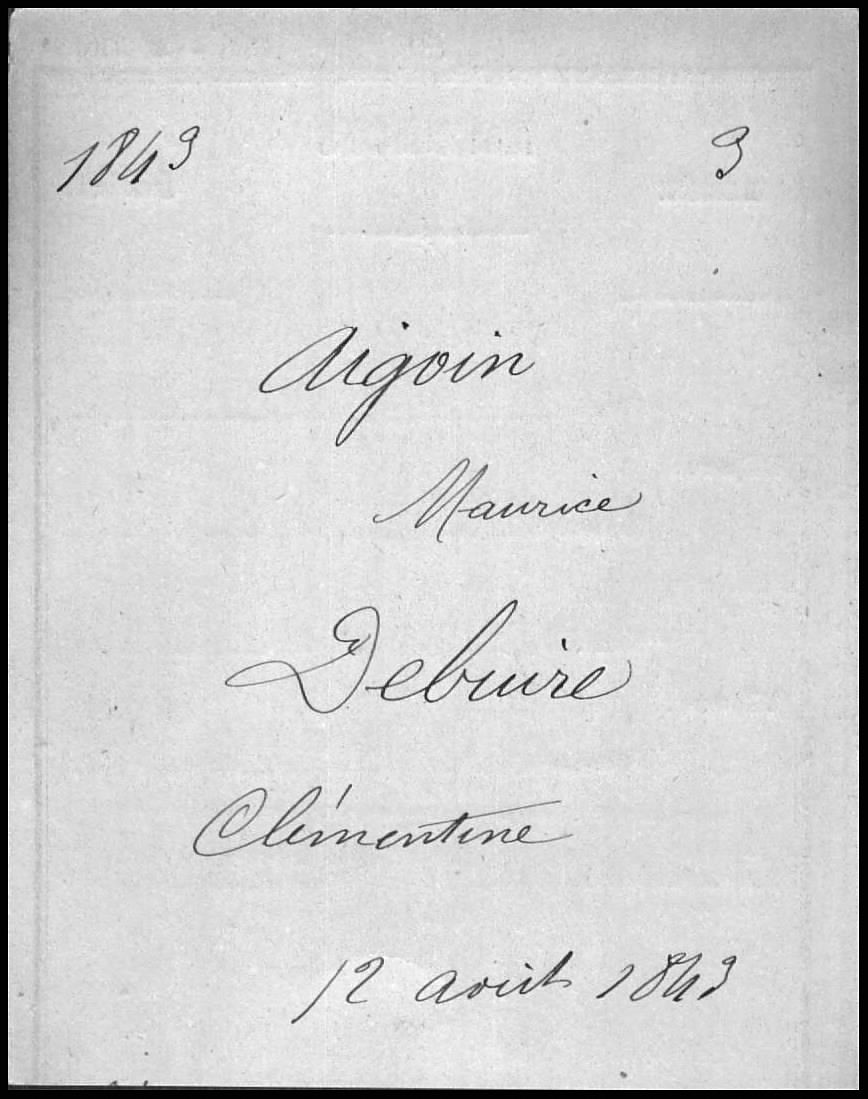 1843 3
Aigoin
Maurice
Debuire
Clémentine
12 août 1843